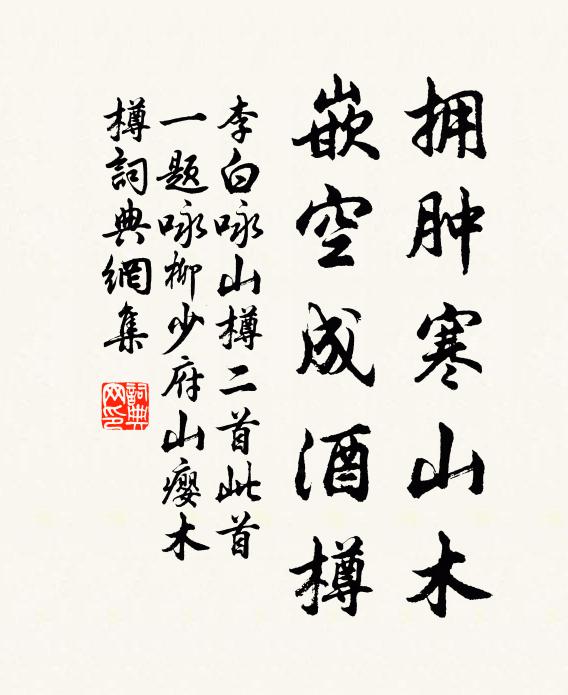 拥肿寒山木
嵌空成酒樽
李白咏山樽二首此首
一题咏柳少府山瘿木
樽詞典網集
詞典网印